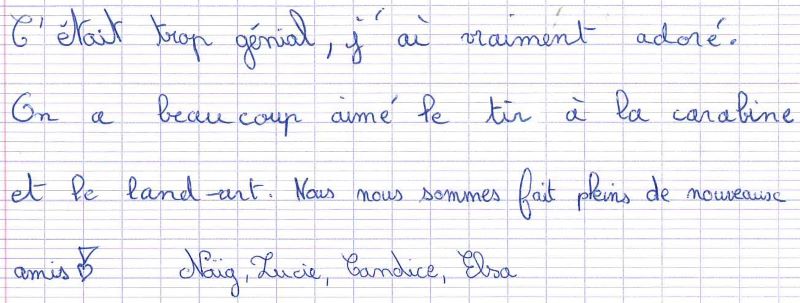 C'était trop génial, j'ai vraiment adoré.
On a beaucoup aimé le tir à la carabine
et le land-art. Nous nous sommes fait pleins de nouveaux
amis ! Naïg, Lucie, Candice, Elsa